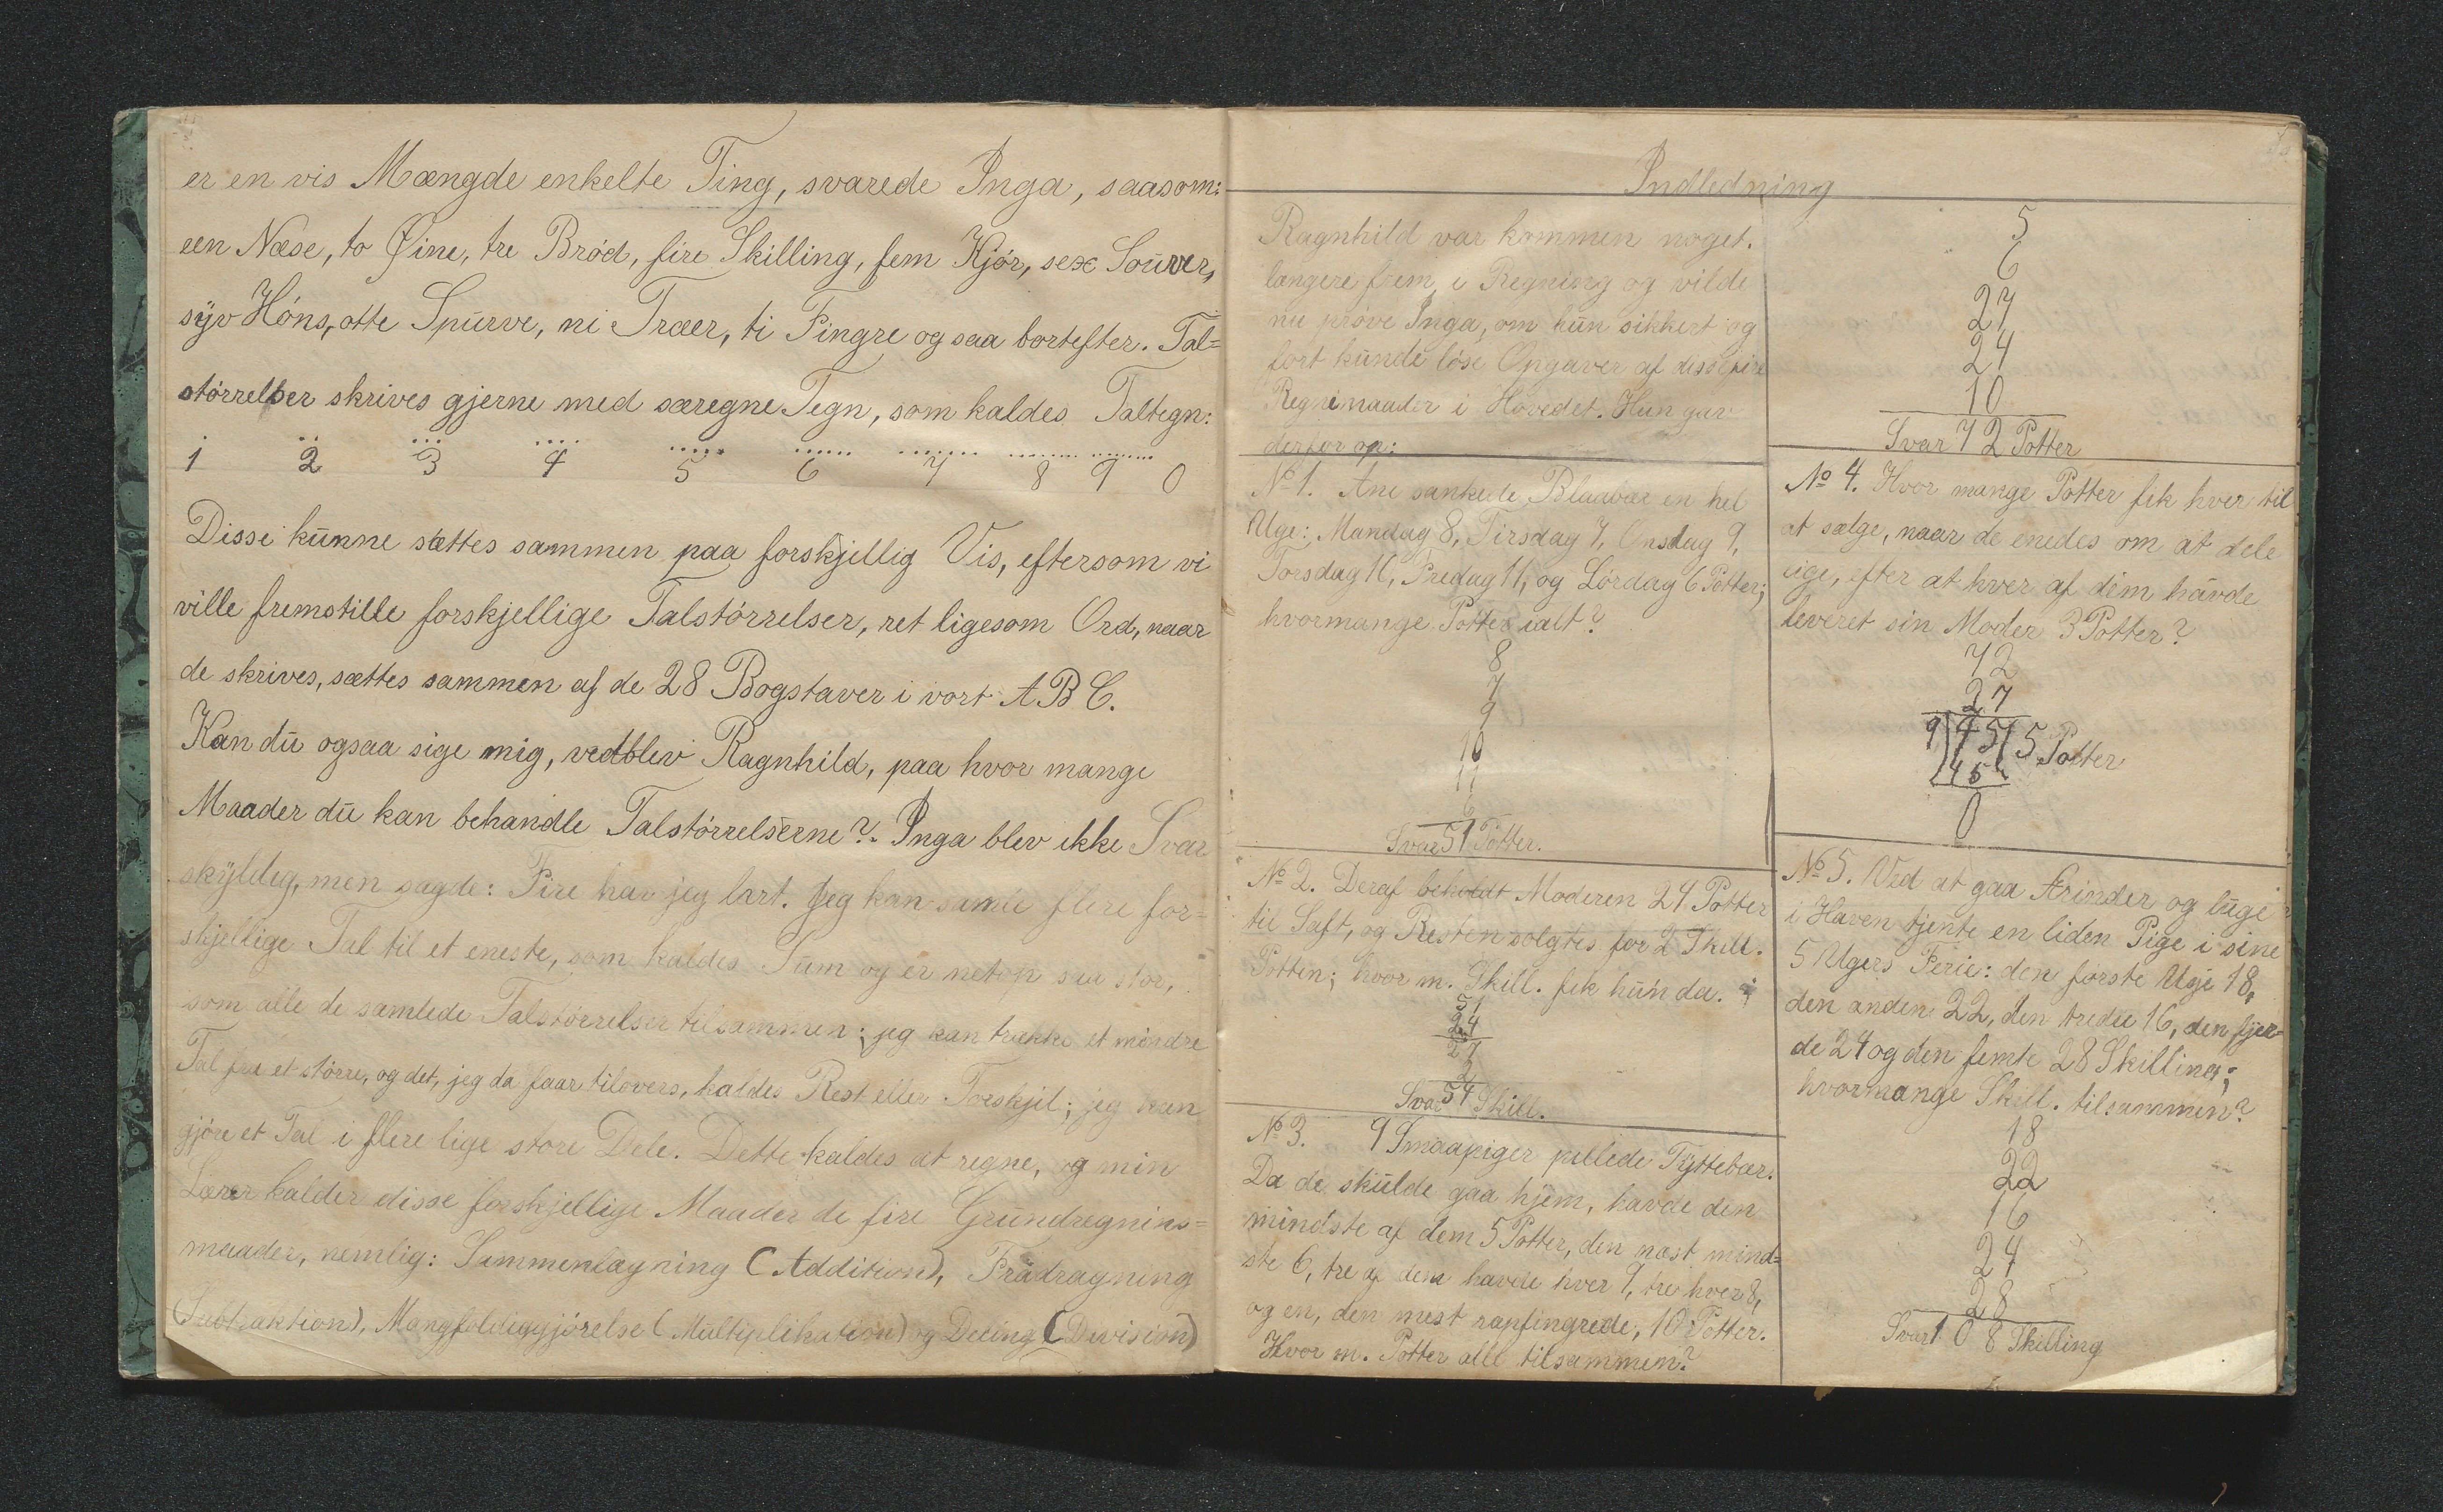 er en vis Mængde enkelte Ting, svarede Inga, saasom:
een Næse, to Øine, tre Brød, fire Skilling, fem Kjør, sex Souver,
syv Høns, otte Spurve, ni Træer, ti Fingre og saa bortefter. Tal=
størrelser skrives gjerne med særegne Tegn, som kaldes Taltegn:
1 2 3 4 5 6 7 8 9 0
Disse kunne sættes sammen paa forskjellig Vis, eftersom vi
ville fremstille forskjellige Talstørrelser, ret ligesom Ord, naar
de skrives, sættes sammen af de 28 Bogstaver i vort A B C.
Kan du ogsaa sige mig, vedblev Ragnhild, paa hvor mange
Maader du kan behandle Talstørrelserne? Inga blev ikke Svar
skyldig, men sagde: Fire har jeg lært. Jeg kan samle flere for=
skjellige Tal til et eneste, som kaldes Sum og er netop saa stor,
som alle de samlede Talstørrelser tilsammen; jeg kan trække et mindre
Tal fra et større, og det, jeg da faar tilovers, kaldes Rest eller Forskjel; jeg kan
gjøre et Tal i flere lige store Dele. Dette kaldes at regne, og min
Lærer kalder disse forskjellige Maader de fire Grundregnins=
maader, nemlig: Sammenlægning (Addition), Fradragning
(Subtraktion), Mangfoldiggjørelse (Multiplikation) og Deling (Division)
Indledning
Ragnhild var kommen noget.
længere frem i Regning og vilde
nu prøve Inga, om hun sikkert og
fort kunde løse Opgaver af disse fire
Regnemaader i Hovedet. Hun gav
derfor op:
No 1. Ane sankede Blaabær en hel
Uge: Mandag 8, Tirsdag 7, Onsdag 9,
Torsdag 10, Fredag 11, og Lørdag 6 Potter;
hvormange Potter ialt?
8
7
9
10
11
6
Svar 51 Potter.
No 2. Deraf beholdt Moderen 24 Potter
til Saft, og Resten solgtes for 2 Skill.
Potten; hvor m. Skill. fik hun da.
51
24
27
2
Svar 54 Skill.
No 3. 9 Smaapiger pillede Tyttebær.
Da de skulde gaa hjem, havde den
mindste af dem 5 Potter, den næst mind=
ste 6, tre af dem havde hver 9, tre hver 8,
og en, den mest rapfingrede, 10 Potter.
Hvor m. Potter alle tilsammen?
5
6
27
24
10
Svar 72 Potter
No 4. Hvor mange Potter fik hver til
at sælge, naar de enedes om at dele
lige, efter at hver af dem havde
leveret sin Moder 3 Potter?
72
27
9) 45 ( 5 Potter
45
0
No 5. Ved at gaa Ærinder og luge
i Haven tjente en liden Pige i sine
5 Ugers Ferie: den første Uge 18,
den anden 22, den tredie 16, den fjer=
de 24 og den femte 28 Skilling;
hvormange Skill. tilsammen?
18
22
16
24
28
Svar 108 Skilling